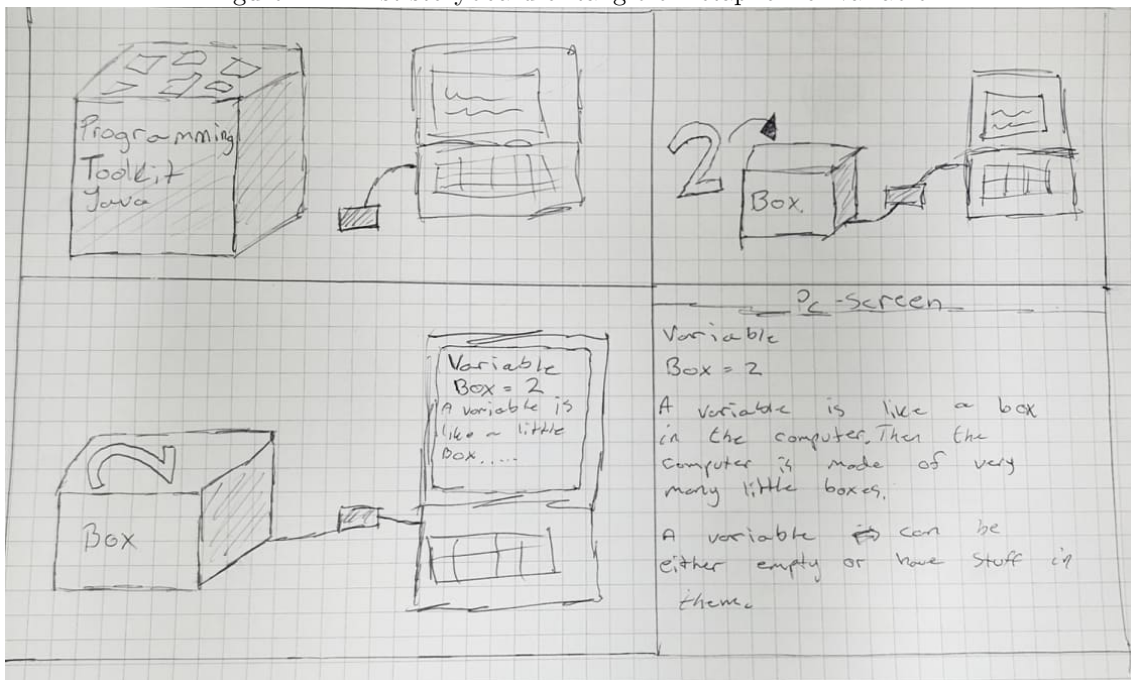 Programming
Toolkit
Java
2
Box
Variable
Box = 2
A variable is
like a little
Box.....
Box
Pc-Screen
Variable
Box = 2
A variable is like a box
in the computer. Then the
computer is made of very
many little boxes.
A variable can be
either empty or have stuff in
them.